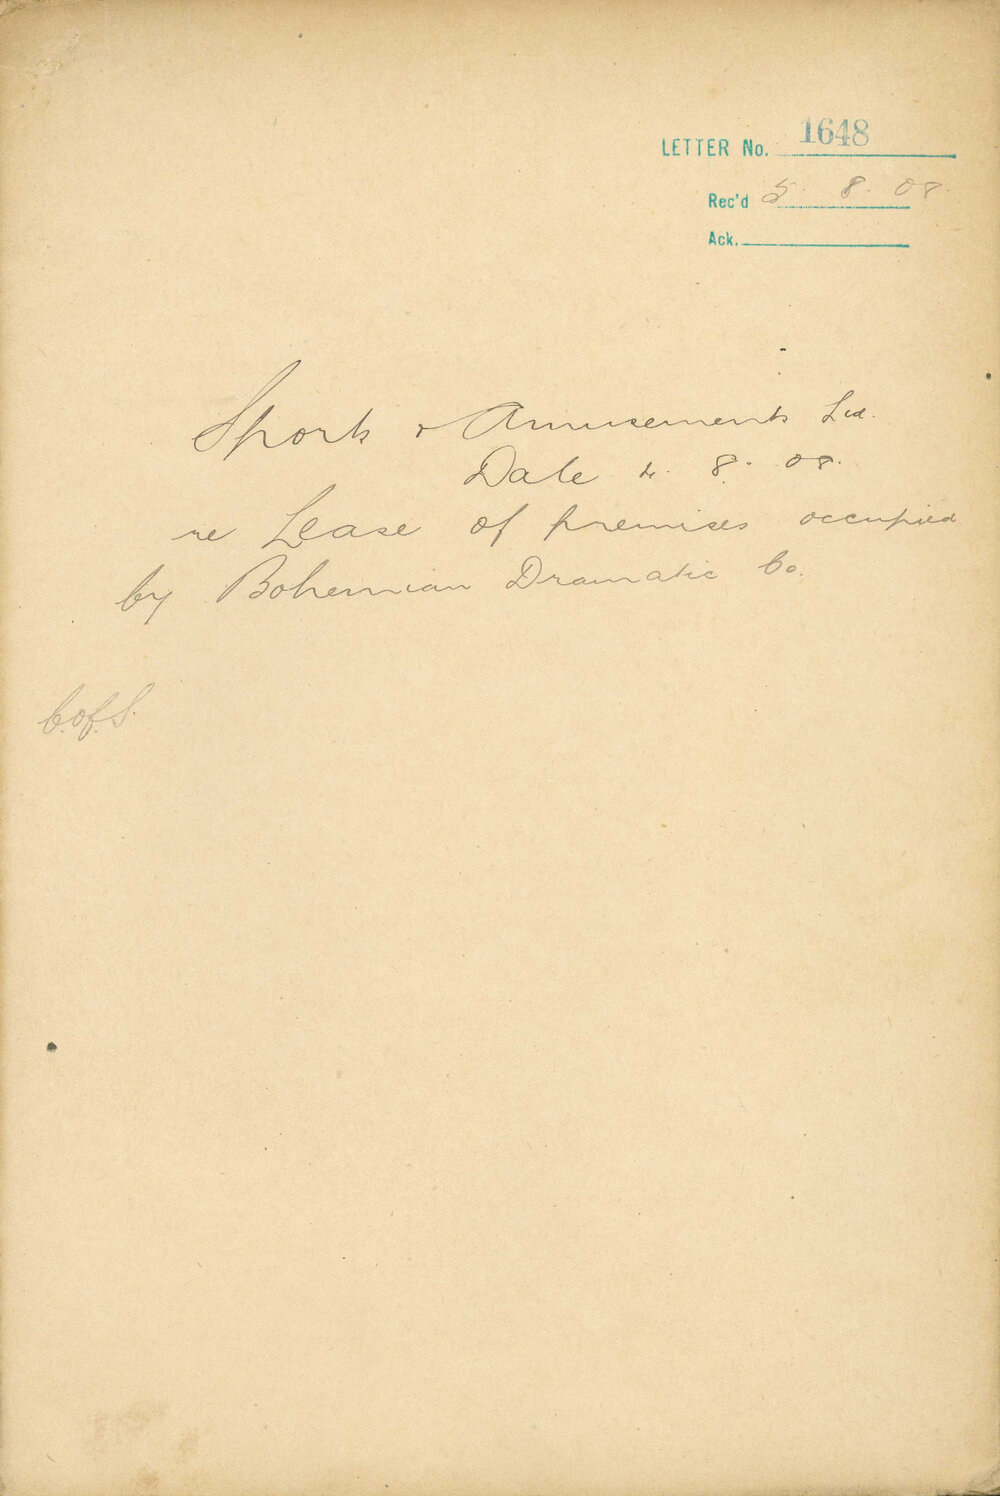 LETTER No. 1648
Rec'd 5. 8. 08.
Ack.
Sports & Amusements Ltd.
Date 4. 8. 08.
re Lease of premises occupied
by Bohemian Dramatic Co.
C.of.S.